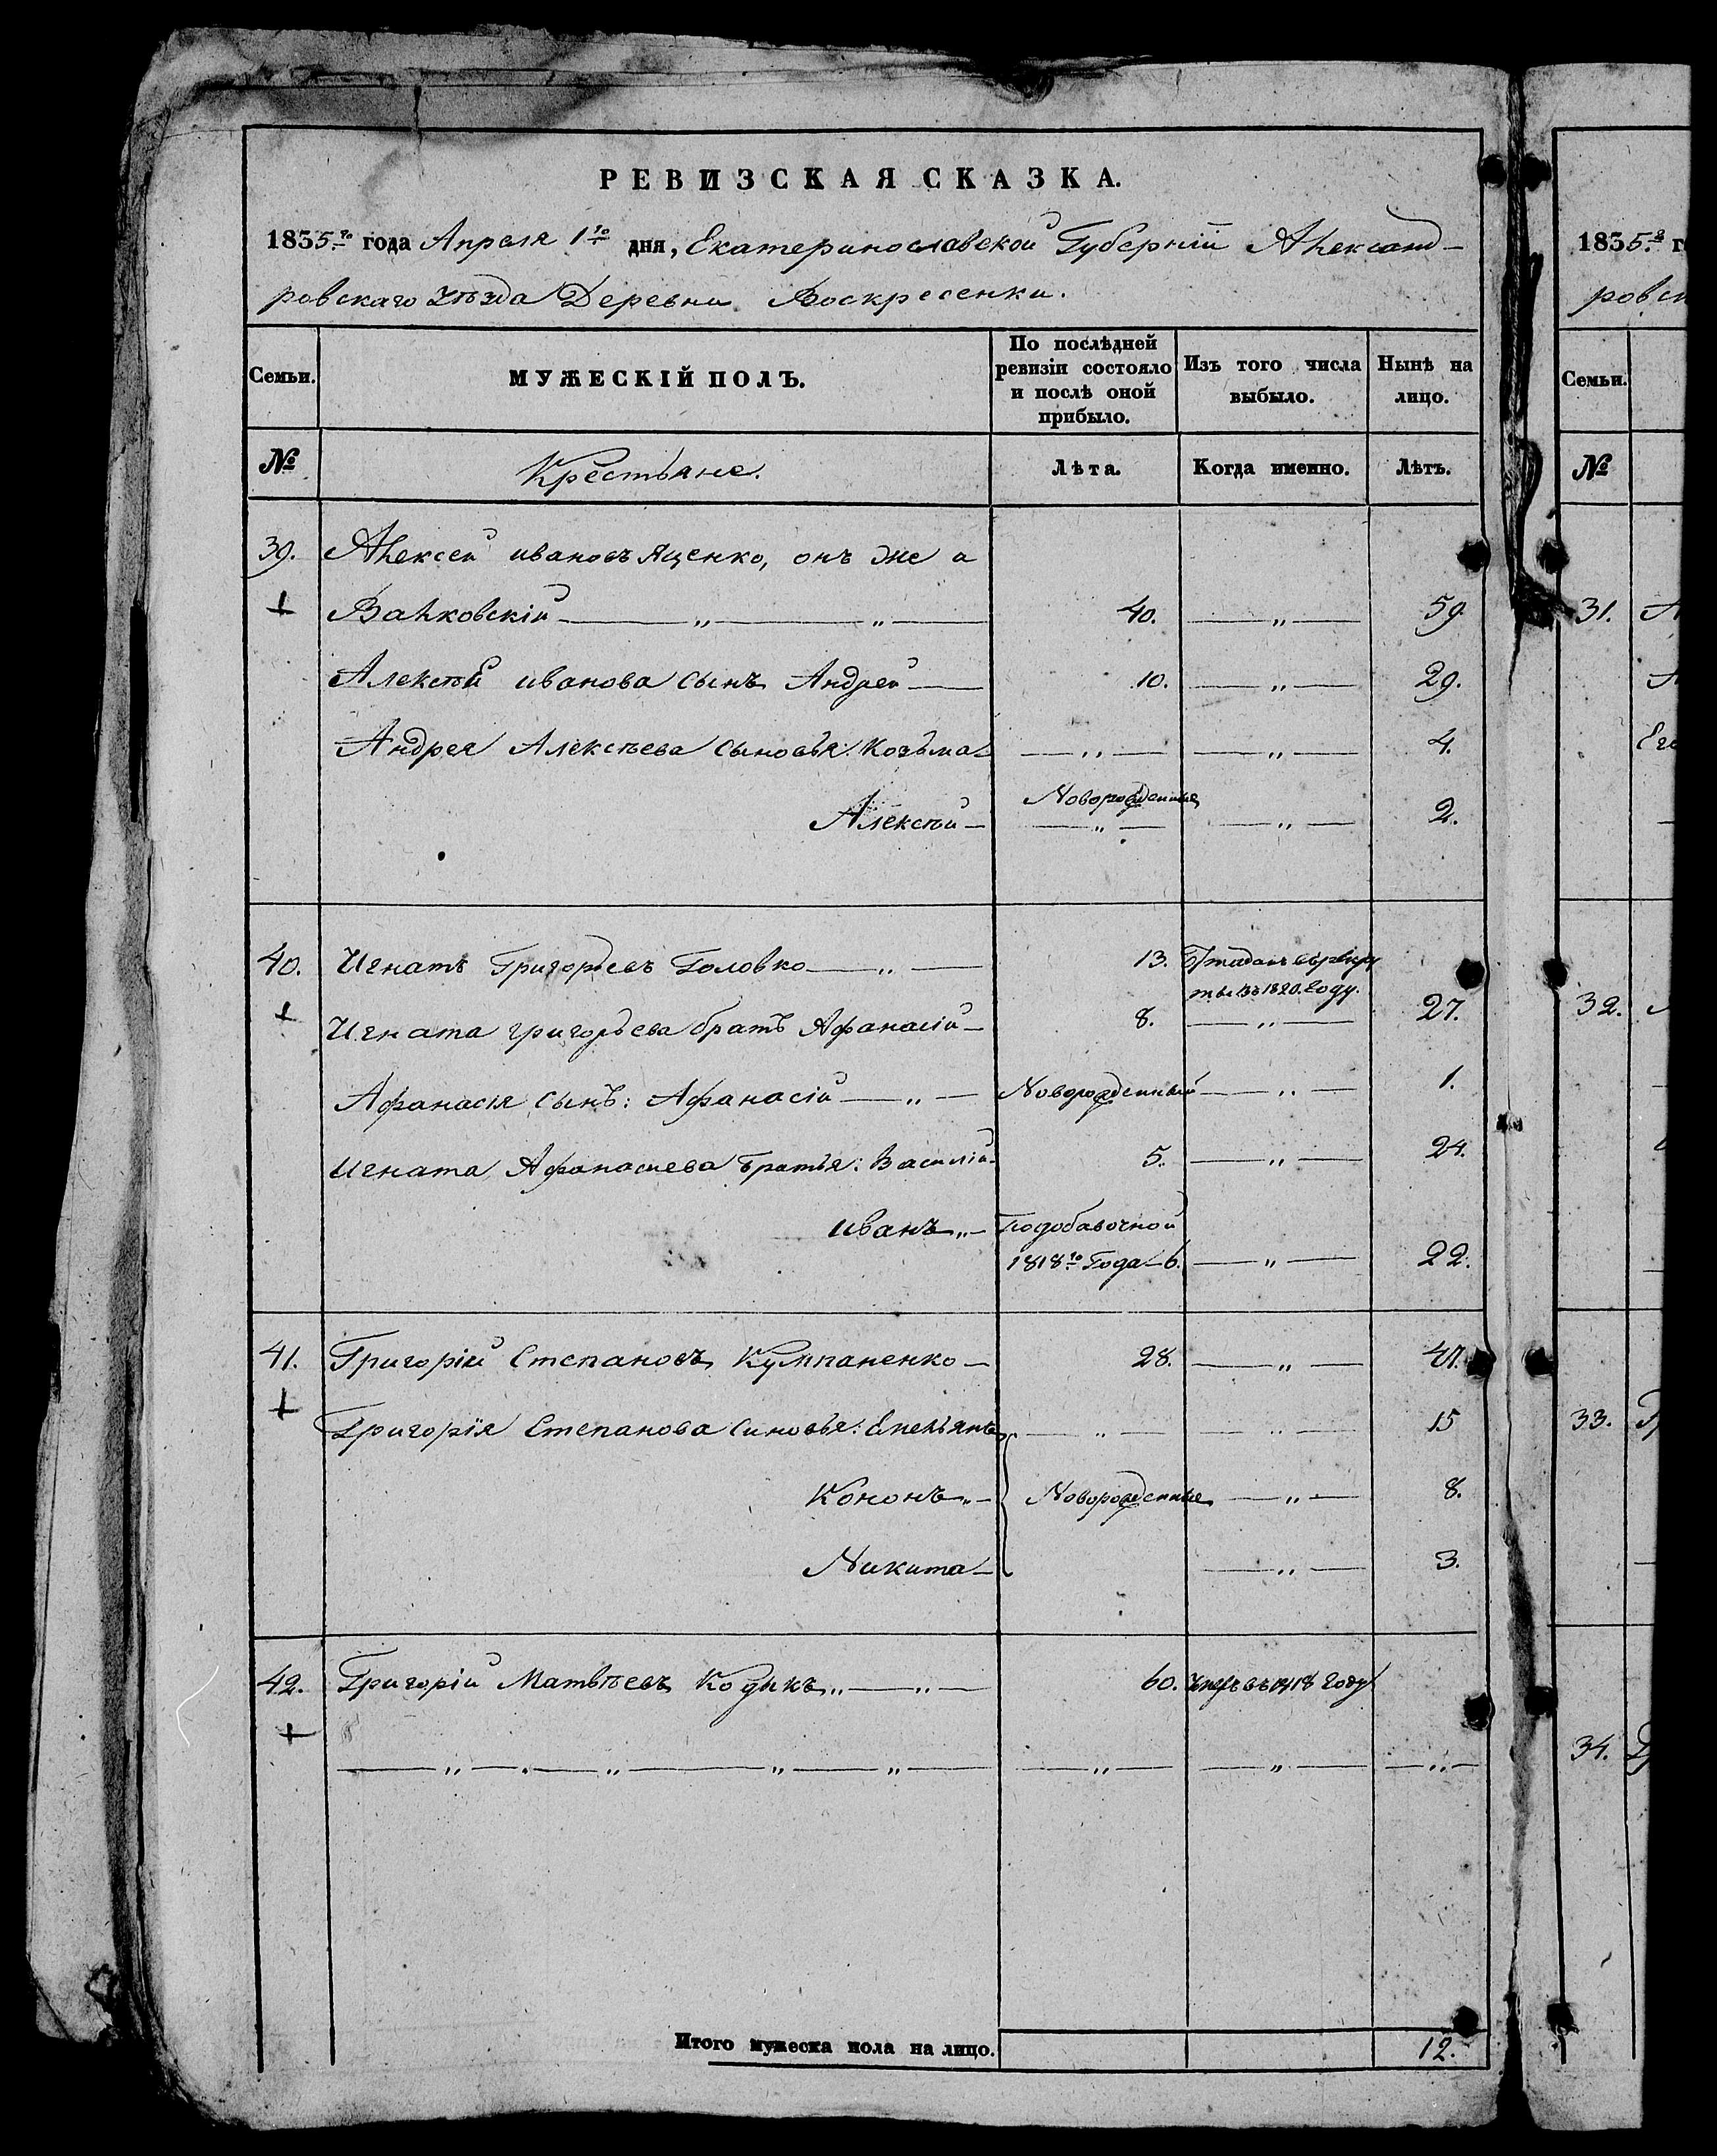 РЕВИЗСКАЯ СКАЗКА.
1835го года Апреля 1го дня, Екатеринославской Губерніи Александ-
ровскаго Уѣзда Деревни Воскресенки.
Семьи. МУЖЕСКІЙ ПОЛЪ. По послѣдней ревизіи состояло и послѣ оной прибыло. Изъ того числа выбыло. Нынѣ на лицо.
№ Крестьяне. Лѣта. Когда именно. Лѣтъ.
39. Алексей ивановъ Яценко, онъ же а
Валковскій — „ — „ — 40. — „ — 59.
Алексѣй иванова сынъ Андрей — 10. — „ — 29.
Андрея Алексѣева сыновья: Козьма — „ — — „ — 4.
Новорожденные
Алексѣй — — „ — — „ — 2.
40. Игнатъ Григорьевъ Головко — „ — 13. Отданъ въ рекру
ты въ 1820. году.
Игната григорьева братъ Афанасій — 8. — „ — 27.
Афанасія сынъ: Афанасій — „ — Новорожденный — „ — 1.
Игната Афанасиева братья: Василій 5. — „ — 24.
иванъ „ — Подобавочной
1818го Года — 6. — „ — 22.
41. Григорій Степановъ Кумпаненко — 28. — „ — 47.
Григорія Степанова синовья: Емельянъ — „ — — „ — 15
Кононъ „ — Новорожденные — „ — 8.
Никита — — „ — 3.
42. Григорій Матвѣевъ Кодыкъ „ — „ — 60. Умеръ въ 1818 году
— „ — „ — „ — „ — — „ — — „ — — „ —
Итого мужеска пола на лицо. 12.
1835го г
ровск
Семьи.
№
31. А
А
Его
32.
33. Гр
34.